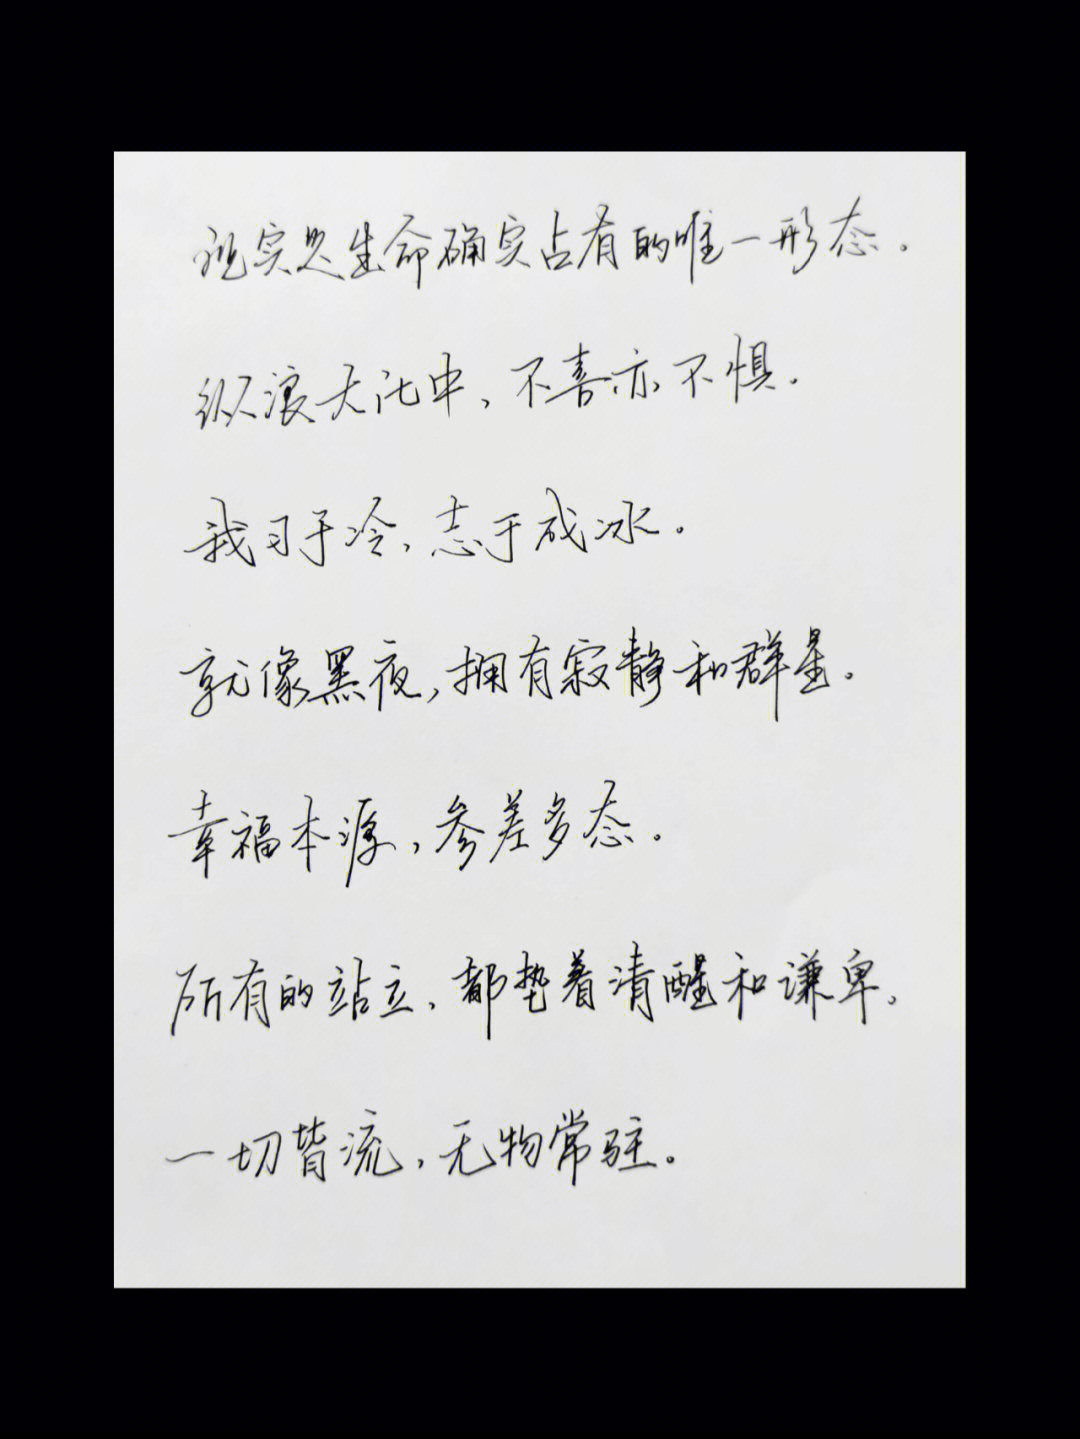 现实是生命确实占有的唯一形态。
纵浪大化中，不喜亦不惧。
我习于冷，志于成冰。
就像黑夜，拥有寂静和群星。
幸福本源，参差多态。
所有的站立，都垫着清醒和谦卑。
一切皆流，无物常驻。